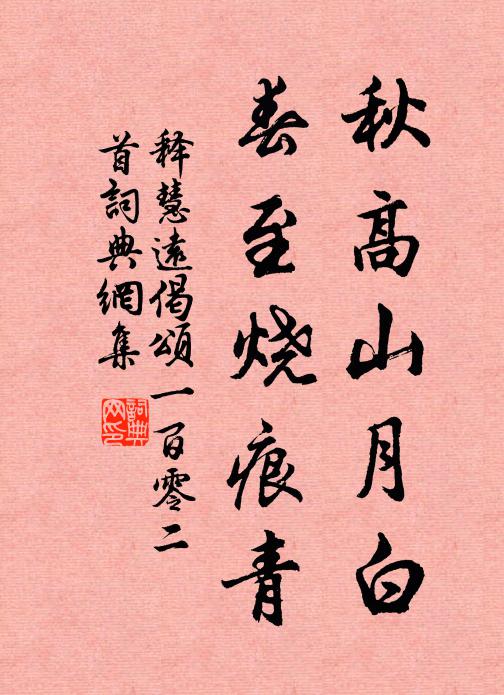 秋高山月白
春至烧痕青
释慧遠偈頌一百零二
首詞典網集
詞典网印